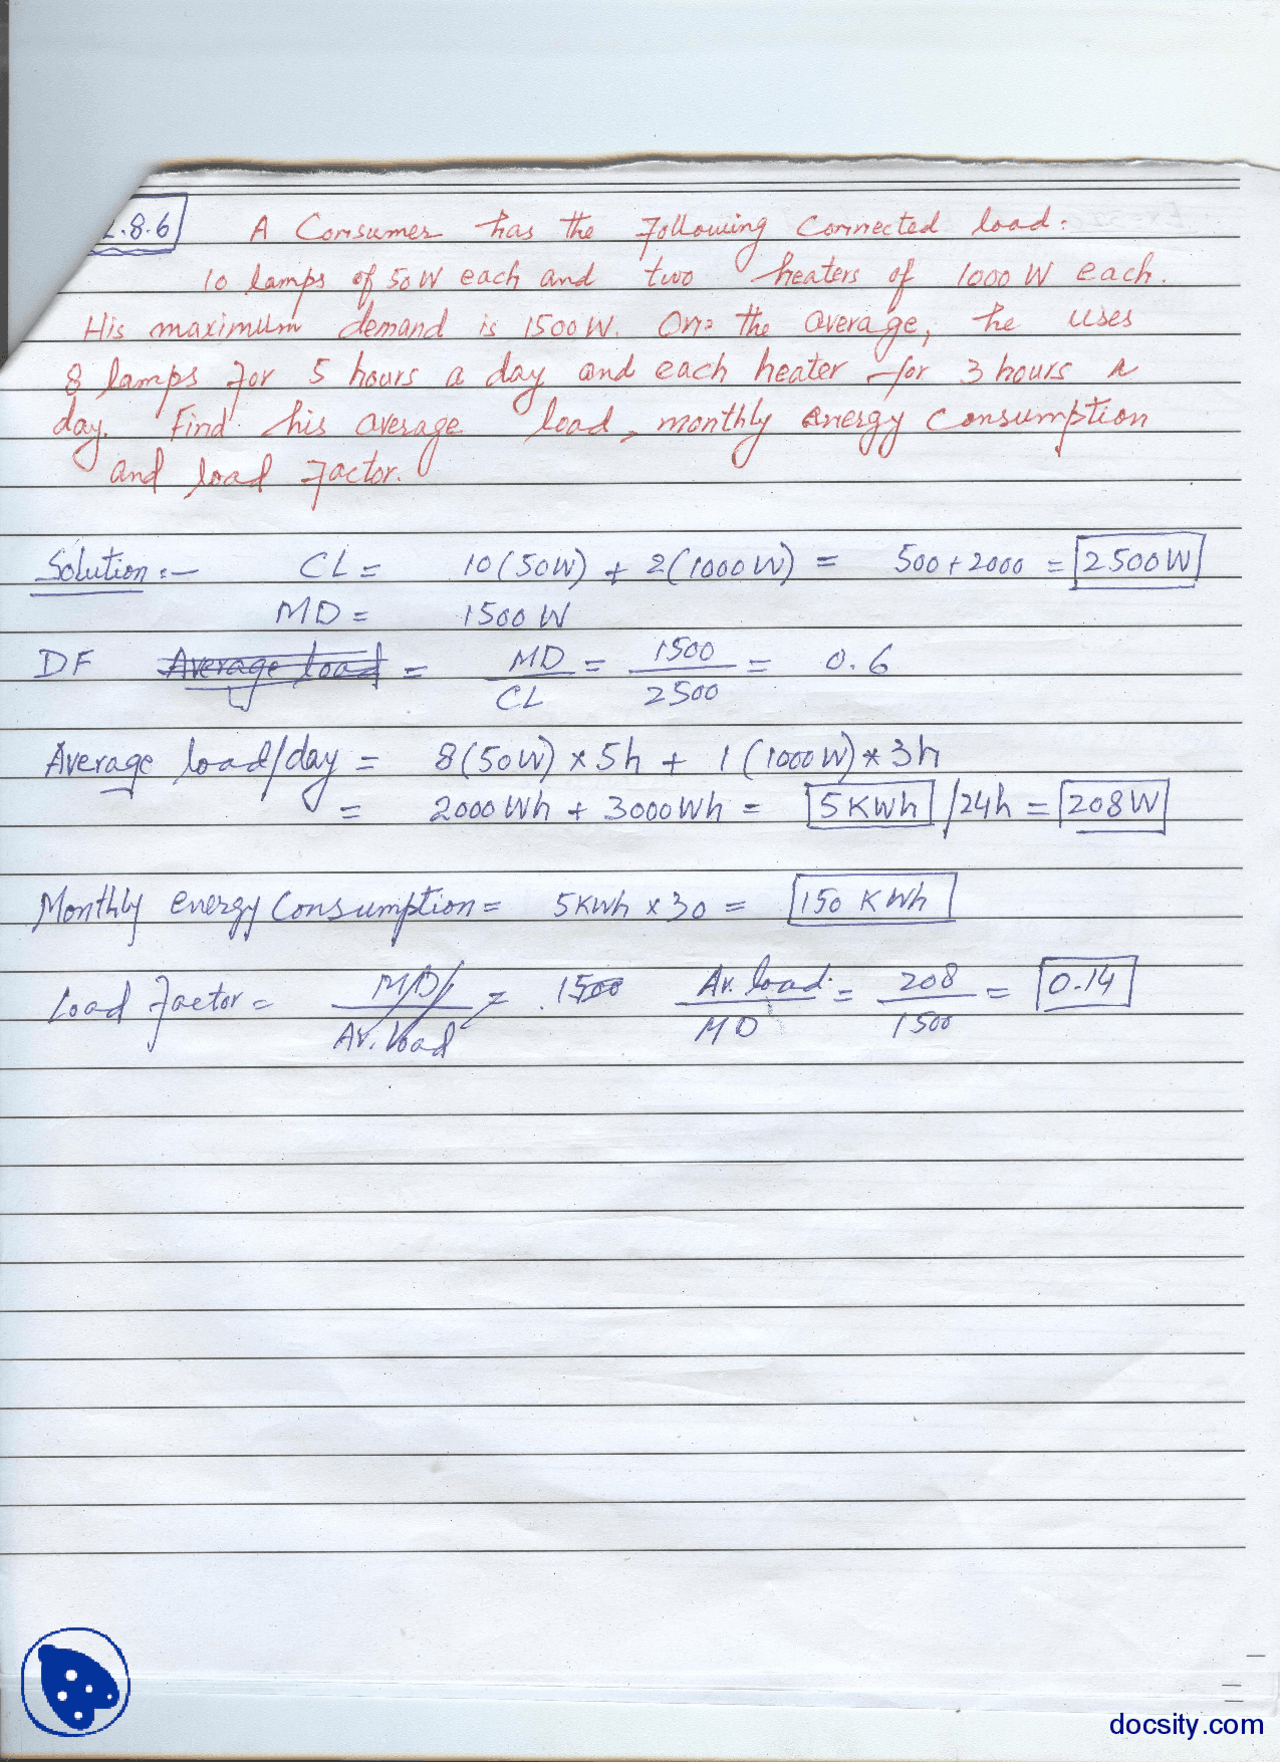 2.8.6 A Consumer has the following connected load:
10 lamps of 50W each and two heaters of 1000 W each.
His maximum demand is 1500W. On the average, he uses
8 lamps for 5 hours a day and each heater for 3 hours a
day. Find his average load, monthly energy consumption
and load factor.
Solution:- CL = 10(50W) + 2(1000W) = 500+2000 = 2500W
MD = 1500 W
DF Average load = MD/CL = 1500/2500 = 0.6
Average load/day = 8(50W) × 5h + 1(1000W) × 3h
= 2000Wh + 3000Wh = 5KWh /24h = 208W
Monthly energy Consumption = 5KWh × 30 = 150 KWh
Load factor = MD/Av. load = 1500 Av. load/MD = 208/1500 = 0.14
docsity.com